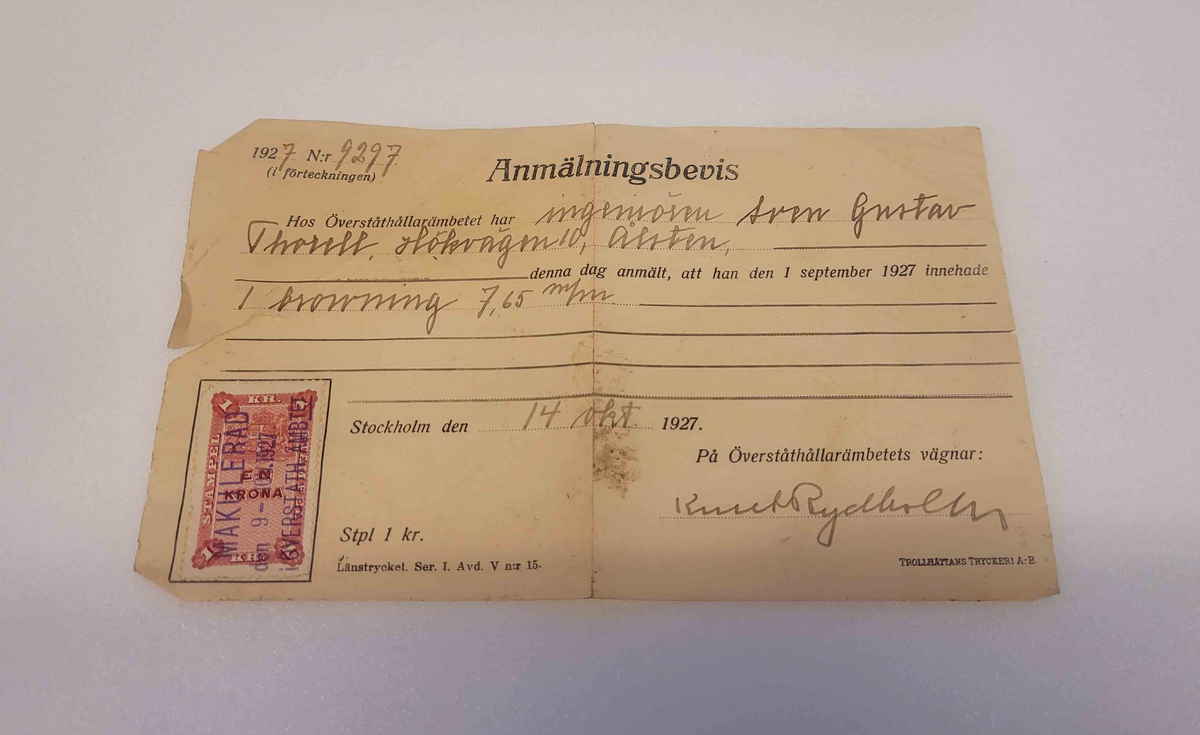 1927 N:r 9297
(i förteckningen)
Anmälningsbevis
Hos Överståthållarämbetet har ingeniören Sven Gustav
Thorell, Hökvägen 10, Ålsten,
denna dag anmält, att han den 1 september 1927 innehade
1 browning 7,65 m/m
KR.
STÄMPEL
EN
KRONA
KR.
MAKULERAD
den 9 - 1927
i ÖVERSTÅTH. AMBTS
Stockholm den 14 okt 1927.
På Överståthållarämbetets vägnar:
Knut Rydholm
Stpl 1 kr.
Länstrycket. Ser. I. Avd. V n:r 15.
TROLLHÄTTANS TRYCKERI A.-B.